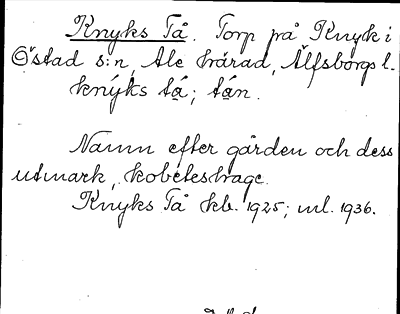 Knyks Tå. Torp på Knyk i
Östad s:n, Ale härad, Älfsborgs l.
knýks tạ̊; tạ̊n.
Namn efter gården och dess
utmark, kobeteshage.
Knyks Tå kb. 1925; ml. 1936.